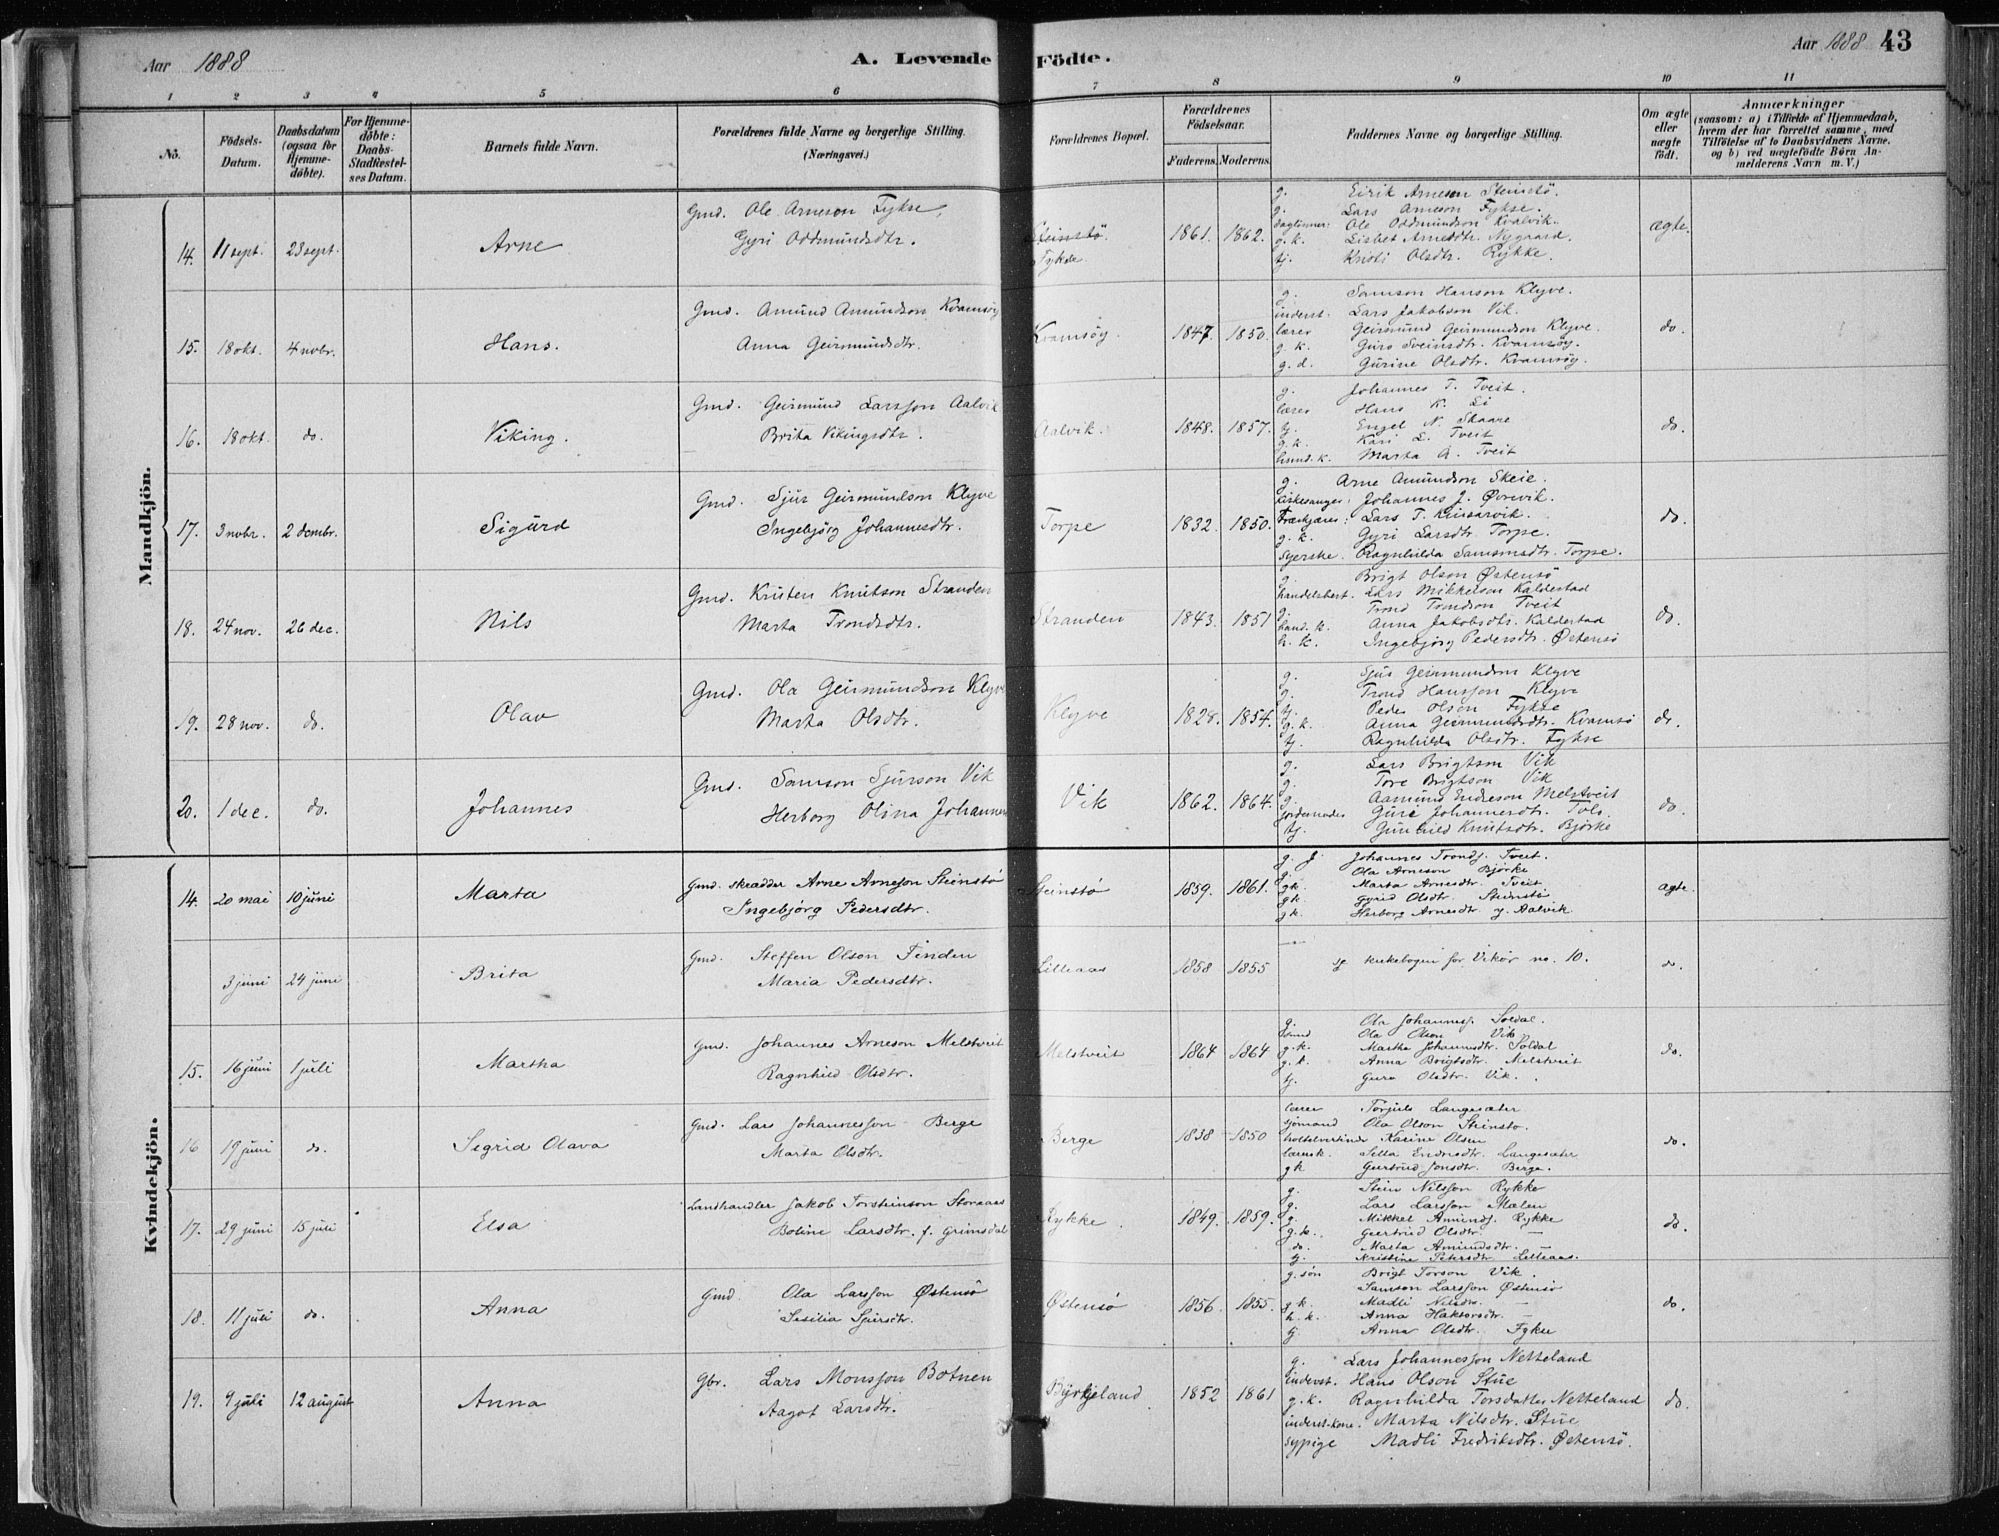 Aar 1888
A. Levende Födte.
Aar 1888 43
1 2 3 4 5 6 7 8 9 10 11
No.
Födsels-Datum.
Daabsdatum (ogsaa for Hjemmedöbte).
For Hjemmedöbte: Daabs-Stadfestelses Datum.
Barnets fulde Navn.
Forældrenes fulde Navne og borgerlige Stilling. (Næringsvei.)
Forældrenes Bopæl.
Forældrenes Födselsaar.
Faderens. Moderens.
Faddernes Navne og borgerlige Stilling.
Om ægte eller uægte födt.
Anmærkninger
(saasom: a) i Tilfælde af Hjemmedaab, hvem der har forrettet samme, med Tilföielse af to Daabsvidners Navne, og b) ved uægtefödte Börn Anmelderens Navn m. V.)
Mandkjön.
14. 11 sept. 23 sept. Arne
Gmd. Ole Arneson Fykse,
Gyri Oddmundsdtr.
Steinstö
Fykse
1861. 1862.
g. Eirik Arneson Steinstö.
g. Lars Arneson Fykse.
Ole Oddmundson Kvalvik.
g.k. Lisbet Arnesdtr. Nygaard.
tj. Kristi Olsdtr. Rykke.
ægte.
15. 18 okt. 4 novbr. Hans.
Gmd. Amund Amundson Kvamsöy
Anna Geirmundsdtr.
Kvamsöy.
1847 1850.
g. Samson Hanson Klyve.
inderst. Lars Jakobson Vik.
lærer Geirmund Geirmundson Klyve.
g. k. Guro Sveinsdtr. Kvamsöy.
g. d. Gurine Olsdtr. Kvamsöy.
do.
16. 18 okt. do. Viking.
Gmd. Geirmund Larsson Aalvik
Brita Vikingsdtr.
Aalvik.
1848. 1857.
g. Johannes T. Tveit.
lærer Hans K. Li
tj. Engel N. Skaare
g.k. Kari L. Tveit
husmd.k. Marta A. Tveit
do.
17. 3 novbr. 2 dcmbr. Sigurd
Gmd. Sjur Geirmundson Klyve
Ingebjörg Johannesdtr.
Torpe
1832. 1850.
g. Arne Amundson Skeie.
kirkesanger. Johannes J. Övrevik.
Lars T. Kinsarvik.
g. k. Gyri Larsdtr. Torpe.
syerske. Ragnhilda Samsonsdtr. Torpe.
do.
18. 24 nov. 26 dec. Nils
Gmd. Kristen Knutson Stranden
Marta Trondsdtr.
Stranden
1843. 1851
g. Brigt Olson Östensö
handelsbert. Lars Mikkelson Kaldestad
g. Trond Trondson Tveit
hand. k. Anna Jakobsdtr. Kaldestad
h. k. Ingebjörg Pedersdtr. Östensö
do.
19. 28 nov. do. Olav
Gmd. Ola Geirmundson Klyve
Marta Olsdtr.
Klyve
1828. 1854.
g. Sjur Geirmundson Klyve
g. Trond Hansson Klyve
tj. Peder Olson Fykse
g. k. Anna Geirmundsdtr. Kvamsö
tj. Ragnhilda Olsdtr. Fykse
do.
20. 1 dec. do. Johannes
Gmd. Samson Sjurson Vik
Herborg Olina Johannes
Vik
1862. 1864.
g. Lars Brigtson Vik
g. Tore Brigtson Vik
g. Aamund Endreson Melstveit
jordemoder Guri Johannesdtr. Tolo.
tj. Gunhild Knutsdtr. Björke
do.
Kvindekjön.
14. 20 mai 10 juni Marta
Gmd. skrædder Arne Arneson Steinstö
Ingebjörg Pedersdtr.
Steinstö
1859. 1861.
g. Johannes Tronds. Tveit.
g. Ola Arneson Björke
gk. Marta Arnesdtr. Tveit
gk. Gyrid Olsdtr. Steinstö
gk. Herborg Arnesdtr. y. Aalvik
ægte.
3 juni 24 juni Brita
Gmd. Steffen Olson Finden
Maria Pedersdtr.
Lilleaas
1858 1855
se kirkebogen for Vikör no. 10.
do.
15. 16 juni 1 juli Martha
Gmd. Johannes Arneson Melstveit
Ragnhild Olsdtr.
Melstveit
1864 1864
g. Ola Johanness. Soldal.
Ola Olson Vik
g.k. Martha Johannsdtr. Soldal
g.k. Anna Brigtsdtr. Melstveit
tj. Guro Olsdtr. Vik.
do.
16 19 juni do. Segrid Olava
Gmd. Lars Johannesson Berge
Marta Olsdtr.
Berge
1838 1850
lærer Torjuls Langesæter
sjömand Ola Olson Steinstö.
hotelvertinde Karine Olsen
lærersk. Silla Endresdtr. Langesæter
gk Gertrud Jonsdtr. Berge.
do.
17. 29 juni 15 juli Elsa
Landhandler Jakob Torsteinson Storeaas
Botine Larsdtr. f. Grimsdal
Rykke.
1849. 1859.
g. Stein Nilsson Rykke
g. Lars Larsson Mælen
g. Mikkel Amunds. Rykke
g.k. Geertrud Olsdtr. —
do. Marta Amundsdtr. —
tj. Kristine Petersdtr Lilleaas.
do.
18. 11 juli do. Anna
Gmd. Ola Larsson Östensö
Sesilia Sjursdtr.
Östensö
1856. 1855.
g. sön Brigt Torson Vik.
Samson Larsson Östensö
g.k. Madli Nilsdtr. —
h. k. Anna Haktorsdtr. —
tj Anna Olsdtr. Fykse
do.
19. 9 juli 12 august Anna
Gbr. Lars Monsson Botnen
Aagot Larsdtr.
Byrkjeland
1852 1861
g. Lars Johannesson Netteland
inderst. Hans Olson Stue
g.k. Ragnhilda Torsdatter Netteland
inderst-kone. Marta Nilsdtr. Stue
sypige Madli Fredriksdtr. Östensö.
do.